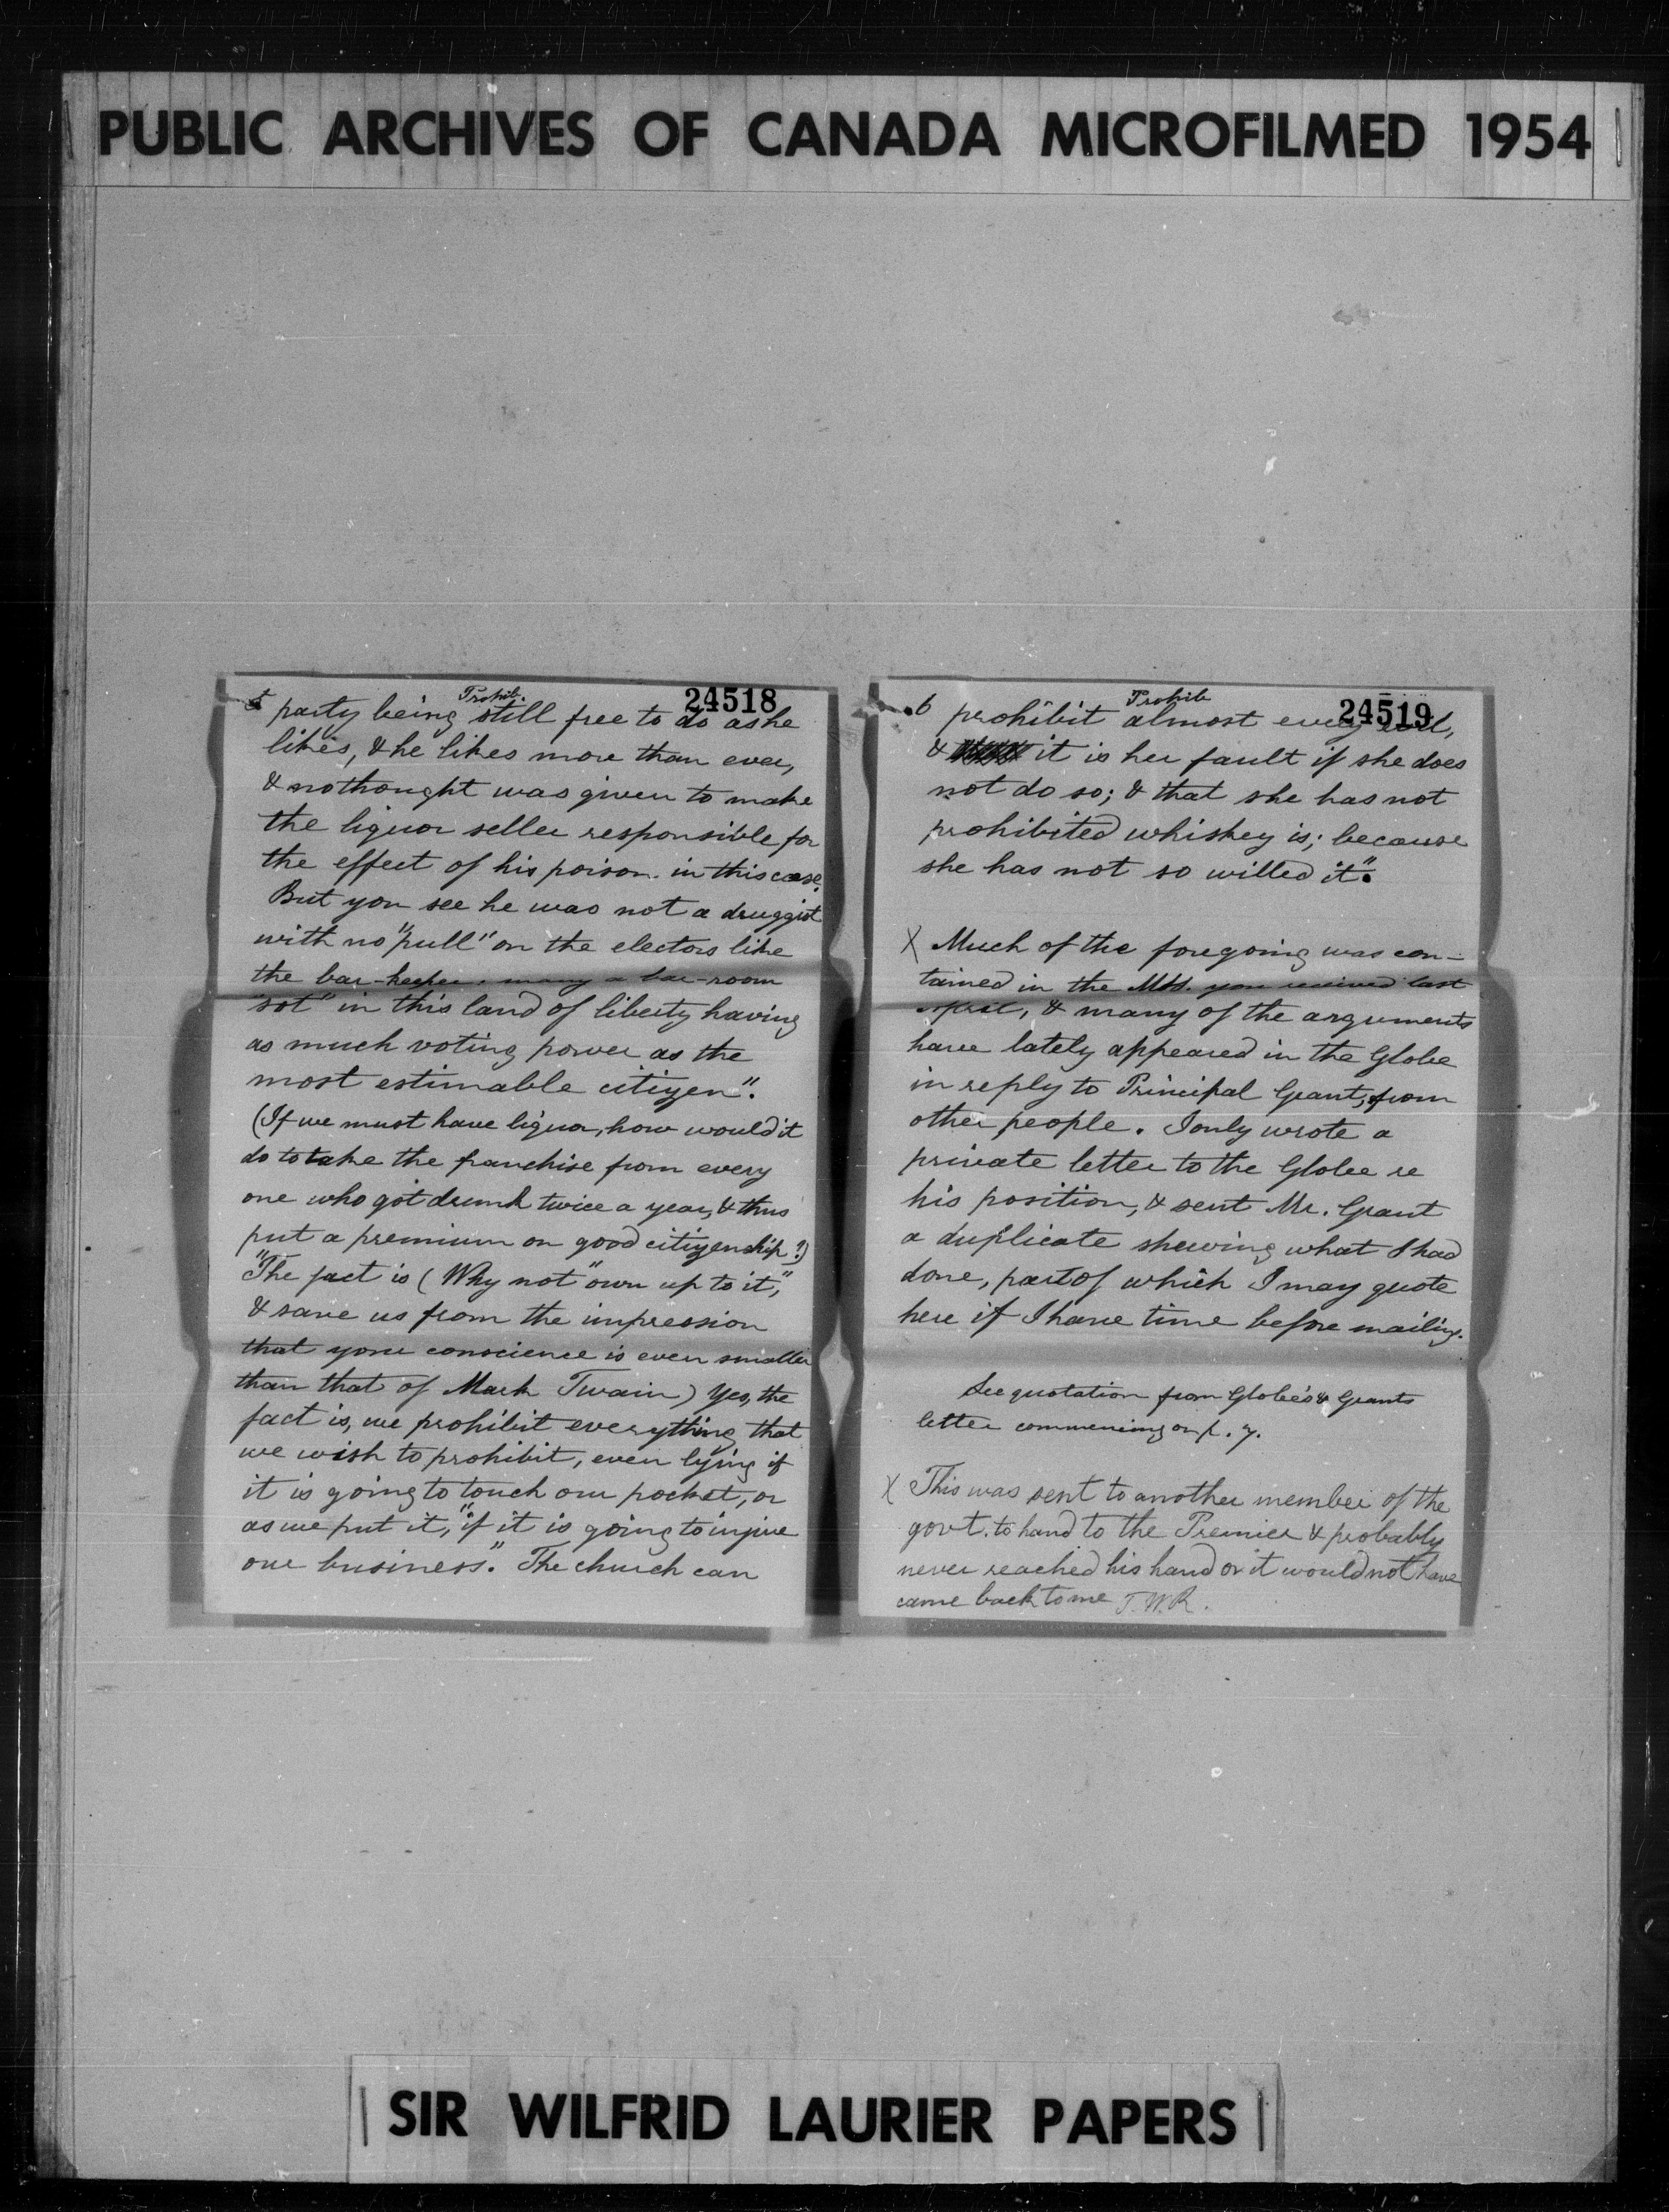 PUBLIC ARCHIVES OF CANADA MICROFILMED 1954
5 Prohib. 24518
party being still free to do as he
likes, & he likes more than ever,
& no thought was given to make
the liquor seller responsible for
the effect of his poison in this case.
But you see he was not a druggist
with no "pull" on the electors like
the bar-keeper, many a bar-room
"sot" in this land of liberty having
as much voting power as the
most estimable citizen".
(If we must have liquor, how would it
do to take the franchise from every
one who got drunk twice a year, & thus
put a premium on good citizenship?)
"The fact is (Why not "own up to it",
& save us from the impression
that your conscience is even smaller
than that of Mark Twain) Yes, the
fact is, we prohibit everything that
we wish to prohibit, even lying if
it is going to touch our pocket, or
as we put it, "if it is going to injure
our business". The church can
6 Prohib 24519
prohibit almost every evil,
& it is her fault if she does
not do so; & that she has not
prohibited whiskey is; because
she has not so willed it".
X Much of the foregoing was con-
tained in the MSS. you received last
April, & many of the arguments
have lately appeared in the Globe
in reply to Principal Grant, from
other people. I only wrote a
private letter to the Globe re
his position, & sent Mr. Grant
a duplicate shewing what I had
done, part of which I may quote
here if I have time before mailing.
See quotation from Globe's & Grants
letter commencing on p. 7.
X This was sent to another member of the
govt. to hand to the Premier & probably
never reached his hand or it would not have
came back to me T.W.R.
SIR WILFRID LAURIER PAPERS